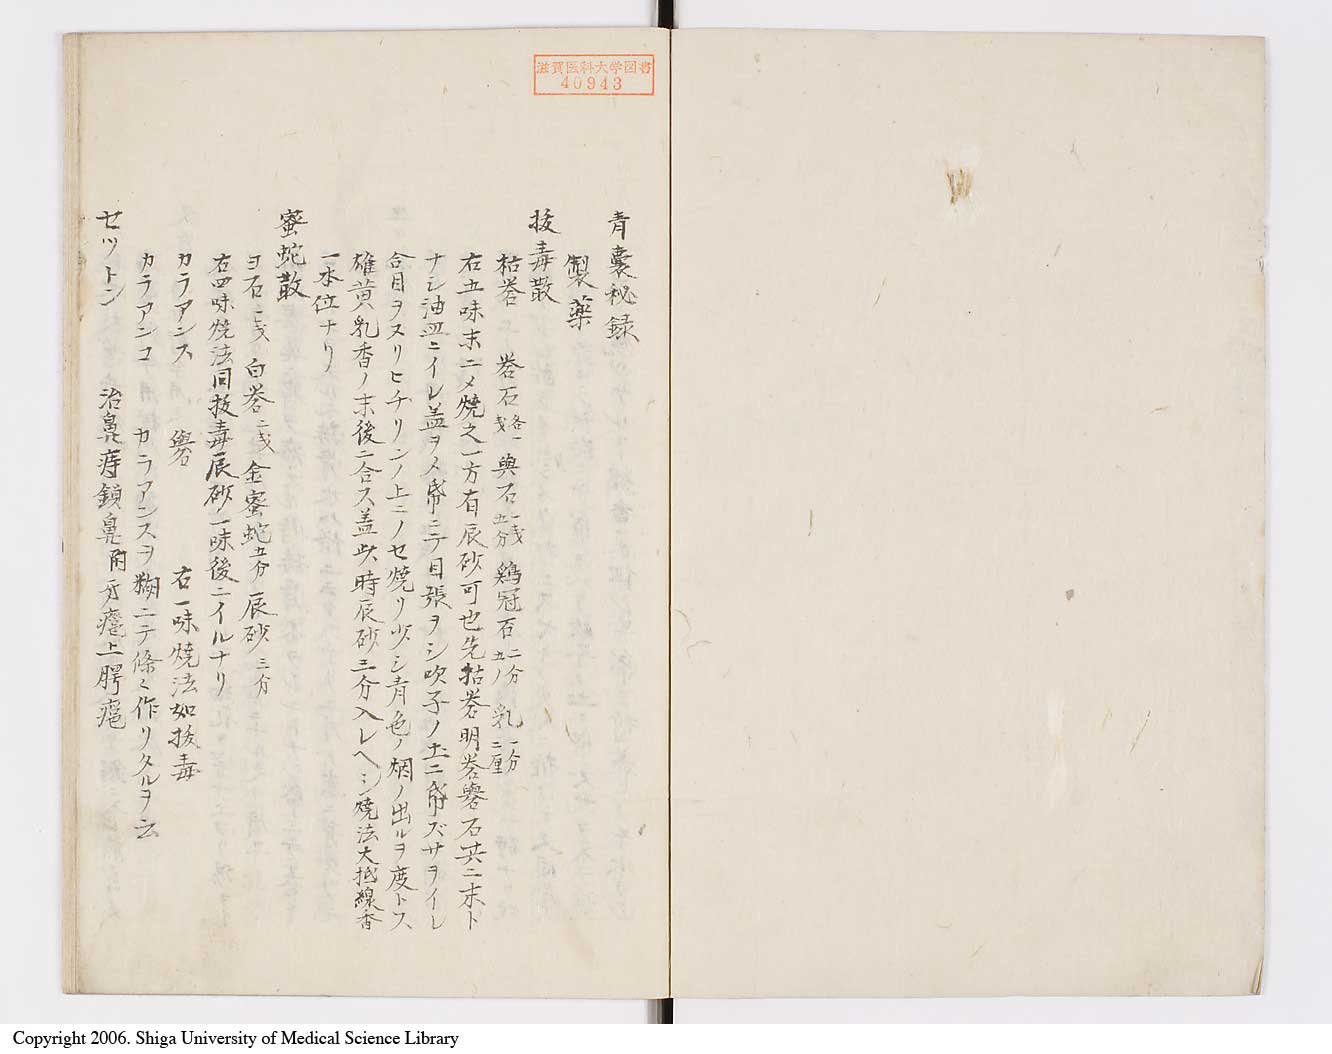 滋賀医科大学図書
40943
青囊秘録
製薬
抜毒散
枯礬 礬石各一戔 與石一戔五分 鶏冠石二分五ノ 乳一分二厘
右五味末ニメ焼之一方有辰砂可也先枯礬明礬礜石共ニ末ト
ナシ油皿ニイレ盖ヲメ帋ニテ目張ヲシ吹子ノ土ニ帋ズサヲイレ
合目ヲヌリヒチリンノ上ニノセ焼リ少シ青色ノ烟ノ出ルヲ度トス
雄黄乳香ノ末後ニ合ス盖此時辰砂三分入レヘシ焼法大抵線香
一本位ナリ
蜜蛇散
ヨ石一戔 白礬二戔 金蜜蛇五分 辰砂三分
右四味焼法同抜毒辰砂一味後ニイルナリ
カラアンス 礜 右一味焼法如抜毒
カラアンコ カラアンスヲ糊ニテ條ニ作リタルヲ云
セツトン 治鼻痔鎖鼻附牙瘡上腭瘡
Copyright 2006. Shiga University of Medical Science Library